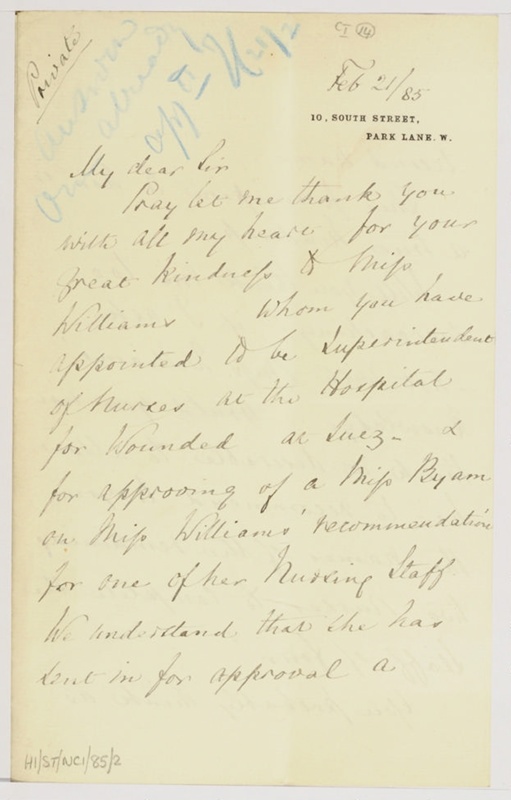 CI 14
Private
Feb 21/85
10, SOUTH STREET,
PARK LANE. W.
My dear Sir
Pray let me thank you
with all my heart for your
great kindness to Miss
Williams whom you have
appointed to be Superintendent
of Nurses at the Hospital
for Wounded at Suez - &
for approving of a Miss Byam
on Miss Williams' recommendation
for one of her Nursing Staff.
We understand that she has
sent in for approval a
H1/ST/NC1/85/2